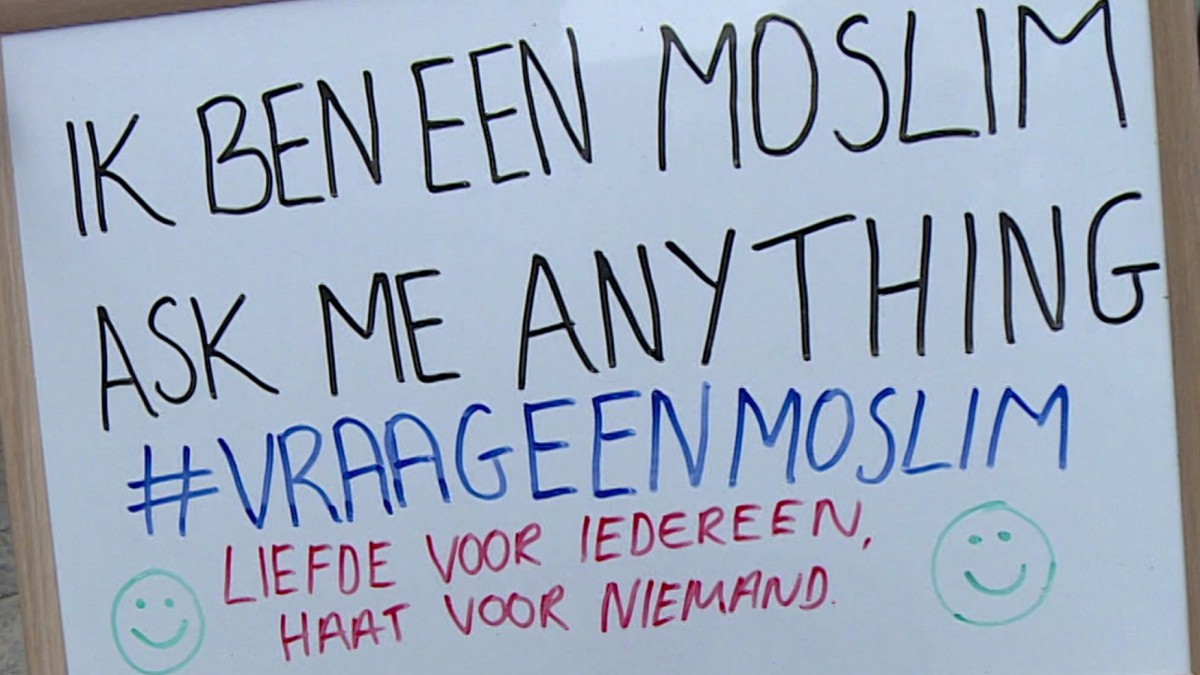 IK BEN EEN MOSLIM
ASK ME ANYTHING
#VRAAGEENMOSLIM
LIEFDE VOOR IEDEREEN,
HAAT VOOR NIEMAND.